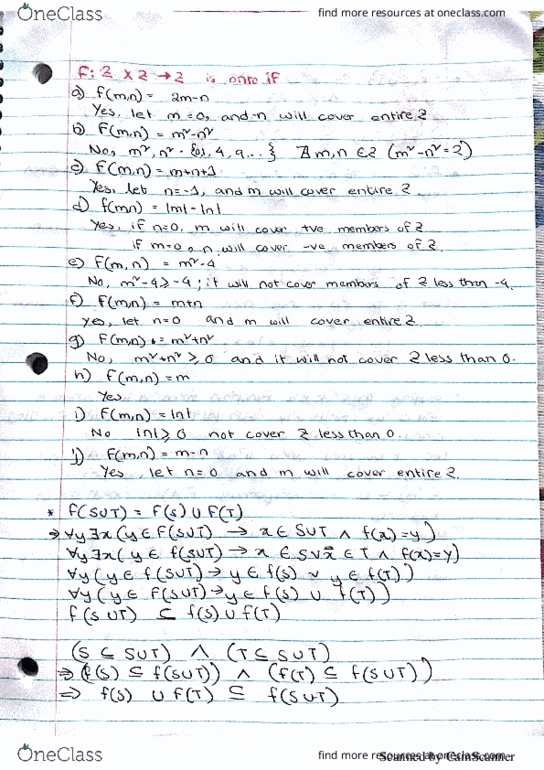 OneClass
find more resources at oneclass.com
f: Z × Z → Z is onto if
a) f(m,n) = 2m-n
Yes, let m=0, and -n will cover entire Z
b) f(m,n) = m²-n²
No, m², n² - {0,1, 4, 9, ...} ∄ m,n ∈ Z (m²-n²=2)
c) f(m,n) = m+n+1
Yes, let n=-1, and m will cover entire Z.
d) f(m,n) = |m|-|n|
Yes, if n=0, m will cover +ve members of Z
if m=0, n will cover -ve members of Z.
e) f(m,n) = m²-4
No, m²-4 ≥ -4; it will not cover members of Z less than -4.
f) f(m,n) = m+n
Yes, let n=0 and m will cover entire Z.
g) f(m,n) = m²+n²
No, m²+n² ≥ 0 and it will not cover Z less than 0.
h) f(m,n) = m
Yes
i) f(m,n) = |n|
No |n| ≥ 0 not cover Z less than 0.
j) f(m,n) = m-n
Yes, let n=0 and m will cover entire Z.
* f(S∪T) = f(S) ∪ f(T)
⇒ ∀y∃x(y ∈ f(S∪T) → x ∈ S∪T ∧ f(x)=y)
∀y∃x(y ∈ f(S∪T) → x ∈ S ∨ x ∈ T ∧ f(x)=y)
∀y(y ∈ f(S∪T) → y ∈ f(S) ∨ y ∈ f(T))
∀y(y ∈ f(S∪T) → y ∈ f(S) ∪ f(T))
f(S∪T) ⊆ f(S) ∪ f(T)
(S ⊆ S∪T) ∧ (T ⊆ S∪T)
⇒ (f(S) ⊆ f(S∪T)) ∧ (f(T) ⊆ f(S∪T))
⇒ f(S) ∪ f(T) ⊆ f(S∪T)
OneClass
find more resources at oneclass.com
Scanned by CamScanner